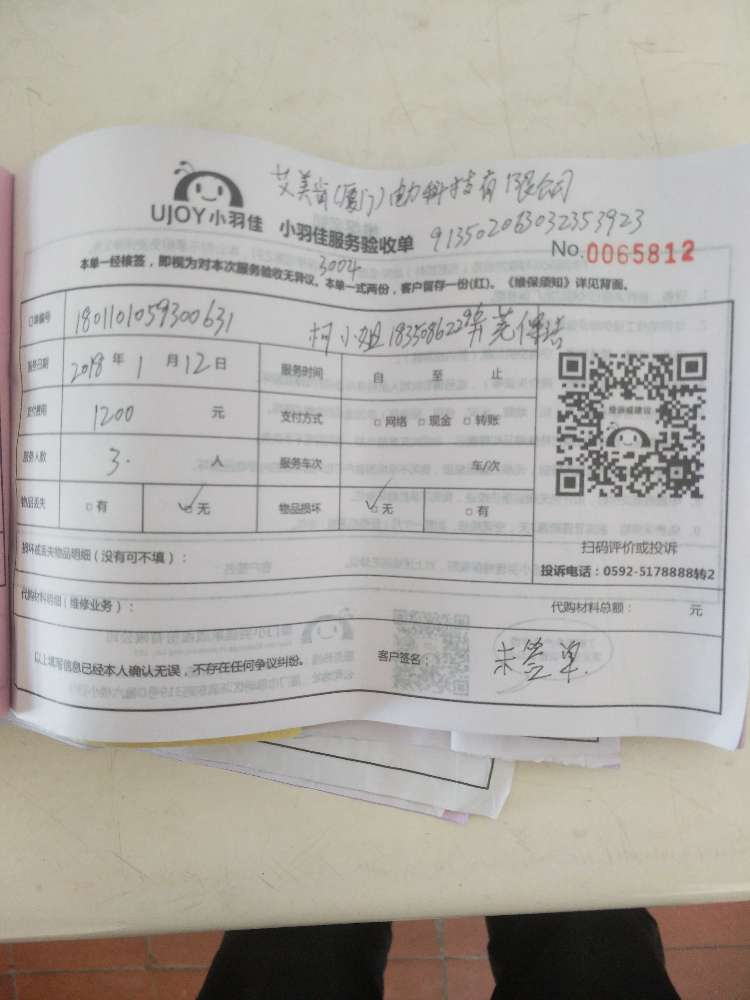 艾美肯(厦门)电力科技有限公司
UJOY小羽佳 小羽佳服务验收单 913502063032353923
No.0065812
3004
本单一经核签，即视为对本次服务验收无异议。本单一式两份，客户留存一份(红)。《维保须知》详见背面。
订单编号 1801101059300631 柯小姐
服务日期 2018 年 1 月 12 日 服务时间 自 至 止
支付费用 1200 元 支付方式 □网络 □现金 □转账
服务人数 3. 人 服务车次 车/次
物品丢失 □有 □无 物品损坏 □无 □有
投诉或建议
扫码评价或投诉
投诉电话：0592-5178888转2
损坏或丢失物品明细（没有可不填）：
代购材料明细（维修业务）： 代购材料总额： 元
以上填写信息已经本人确认无误，不存在任何争议纠纷。 客户签名： 未签单